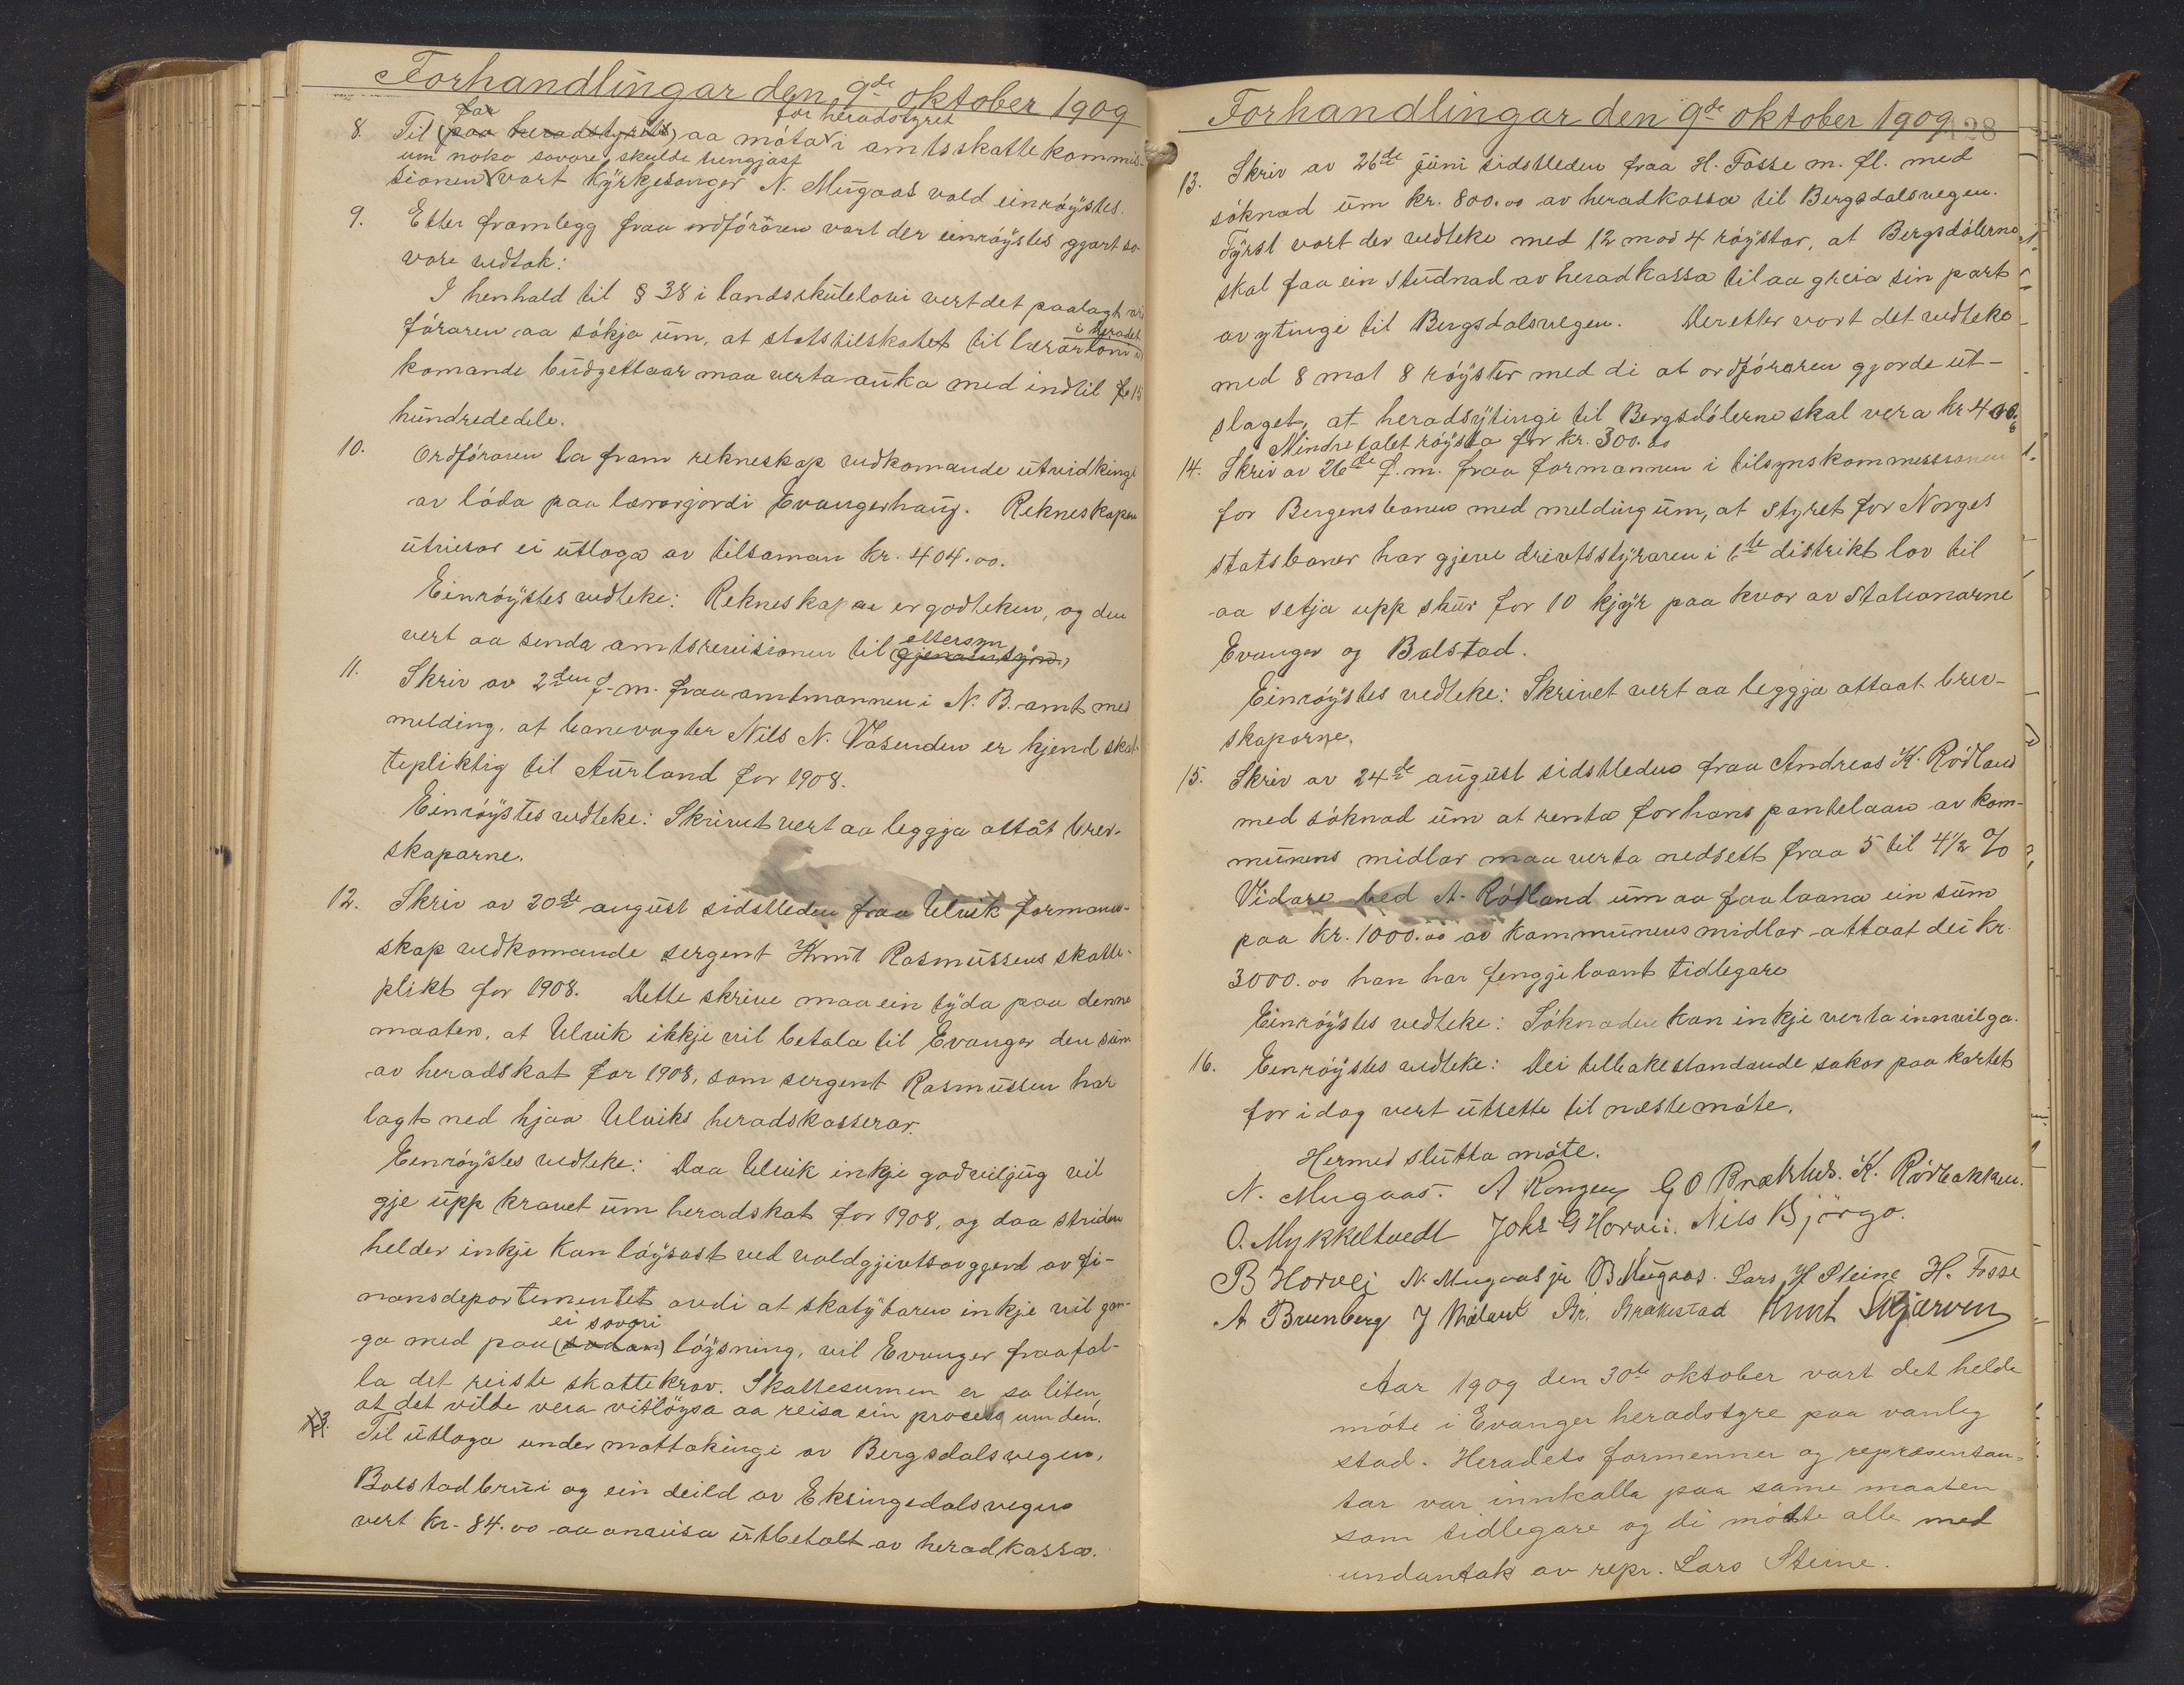 Forhandlingar den 9de oktober 1909
for for heradstyret
8. Til (paa heradstyrets) aa møta i amtsskattekommis-
um noko sovore skulde trengjast
sionen vart kyrkesongar N. Mügaas vald einrøystes.
9. Etter framlegg fraa ordføraren vart der einrøystes gjort so-
vore vedtak:
I henhald til § 38 i landsskuleloui vert det paalagt ord-
i heradet
føraren aa søkja um, at statstilskotet til lærarløni i
komande budgettaar maa verta auka med indtil 15
hundrededele.
10. Ordføraren la fram rekneskap vedkomande utvidkingi
av løda paa lærarjordi Evangerhaug. Rekneskapen
utviser ei utloga av tilsaman kr. 404.00.
Einrøystes vedteke: Rekneskapen er godteken, og den
ettersyn
vert aa senda amtsrevisionen til (gjenomsyn)
11. Skriv av 2den f. m. fraa amtmannen i N. B. amt med
melding, at banevogter Nils N. Vasenden er kjend skat-
tepliktig til Aurland for 1908.
Einrøystes vedteke: Skrivet vert aa leggja attåt brev-
skaparne.
12. Skriv av 30de august sidstleden fraa Ulvik formann-
skap vedkomande sergent Knut Rasmussens skatte-
plikt for 1908. Dette skrive maa ein tyda paa denne
maaten, at Ulvik ikkje vil betala til Evanger den sum
av heradskat for 1908, som sergent Rasmussen har
lagt ned hjaa Ulviks heradskasserar.
Einrøystes vedteke: Daa Ulvik inkje godviljug vil
gje upp kravet um heradskat for 1908, og daa striden
helder inkje kan løysast ved voldgjiftsavgjerd av fi-
nansdepartementet avdi at skatytaren inkje vil gan-
ei sovori
ga med paa (sodan) løysning, vil Evanger fraafal-
la det reiste skattekrav. Skattesumen er so liten,
at det vilde vera vitløysa aa reisa ein process um den.
13. Til utloga under mottakingi av Bergsdalsvegen,
Bolstadbrui og ein deild av Eksingedalsvegen
vert kr. 84.00 aa anvisa utbetalt av heradkassa.
Forhandlingar den 9de oktober 1909
128
13. Skriv av 26de juni sidstleden fraa H. Fosse m. fl. med
søknad um kr. 800.00 av heradkassa til Bergsdalsvegen.
Fyrst vart der vedteke med 12 mod 4 røystar, at Bergsdølerne
skal faa ein studnad av heradkassa til aa greia sin part
av ytingi til Bergsdalsvegen. Deretter vart det vedteke
med 8 mot 8 røyster med di at ordføraren gjorde ut-
slaget, at heradsytingi til Bergsdølerne skal vera kr 400.
Mindretalet røysta for kr. 300.00
14. Skriv av 26de f. m. fraa formannen i tilsynskommissionen
for Bergensbanen med melding um, at styret for Norges
statsbaner har gjeve driftsstyraren i 6te distrikt lov til
aa setja upp skur for 10 kjyr paa kvar av stationarne
Evanger og Bolstad.
Einrøystes vedteke: Skrivet vert aa leggja attaat brev-
skaparne.
15. Skriv av 24de august sidstleden fraa Andreas K. Rødland
med søknad um at renta for hans pantelaan av kom-
munens midlar maa verta nedsett fraa 5 til 4 1/2 %
Vidare bed A. Rødland um aa faa laana ein sum
paa kr. 1000.00 av kommunens midlar attaat dei kr.
3000.00 han har fenggje laant tidlegare
Einrøystes vedteke: Søknaden kan inkje verta innvilga.
16. Einrøystes vedteke: Dei tilbakestandande sakor paa kartet
for idag vert utsette til næste møte.
Hermed slutta møte.
N. Mugaas. A Rongen G O Brækhus. K. Rødbakken.
O. Mykkeltvedt Johs G Horvei. Nils Bjørgo.
B Horvei N. Mugaas jr O Mügaas. Lars H Steine H. Fosse
A Brunborg J Mæland Br. Brakestad Knut Skjerven
Aar 1909 den 30te oktober vart det helde
møte i Evanger heradstyre paa vanleg
stad. Heradets formenner og representan-
tar var innkalla paa same maaten
som tidlegare og di møtte alle med
undantak av repr. Lars Steine.